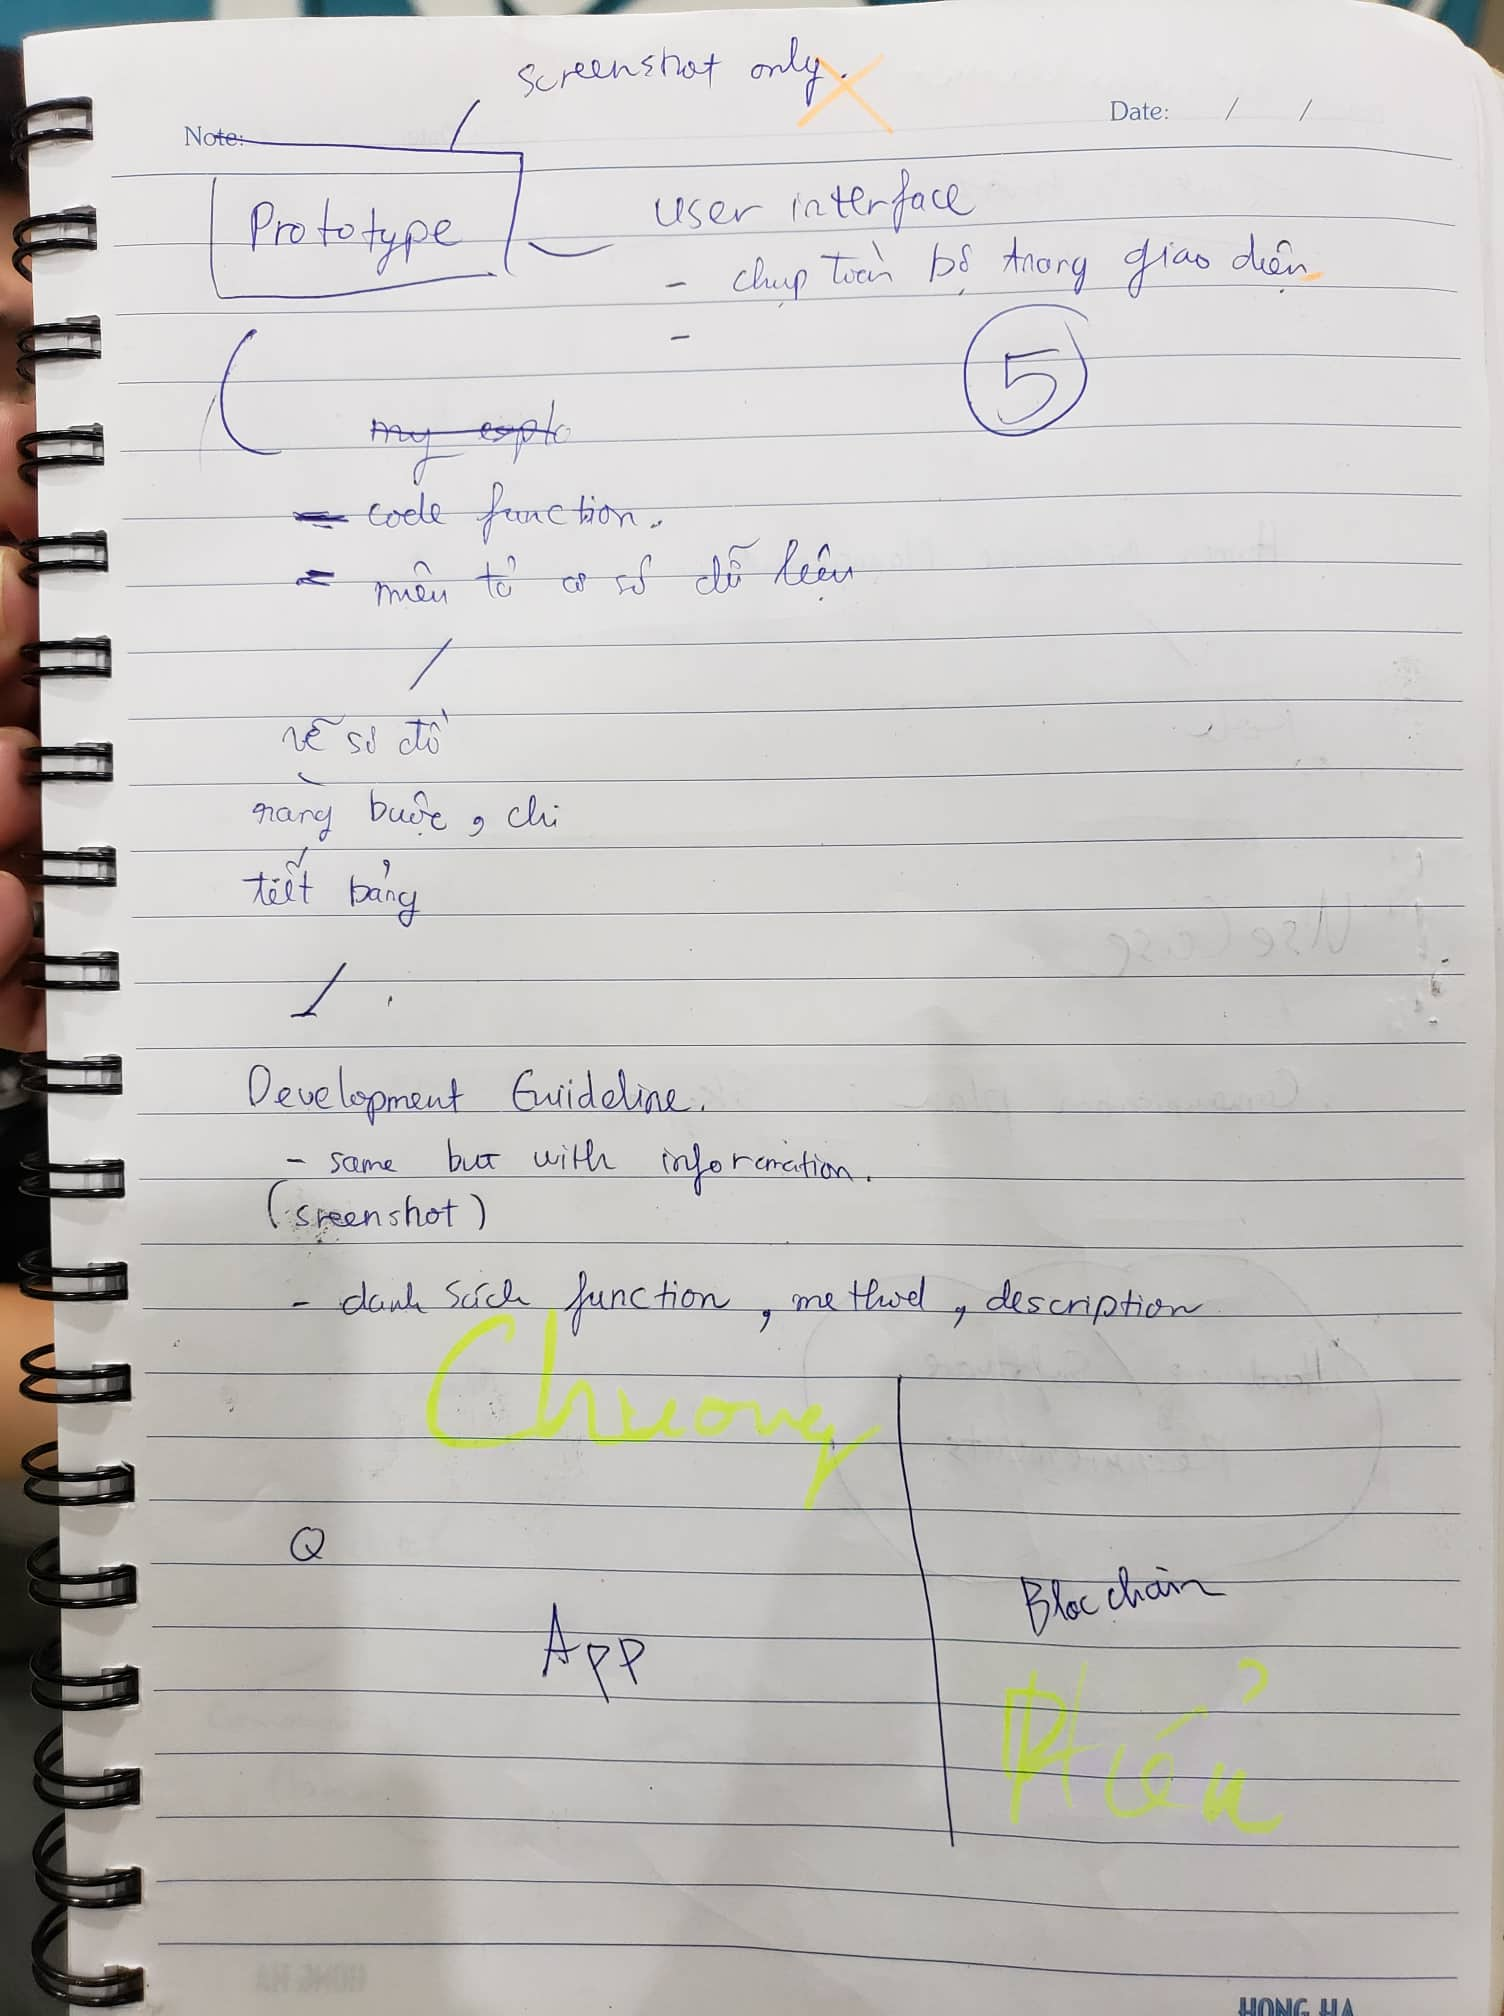 screenshot only.
Note:
Date: / /
Prototype
user interface
- chụp toàn bộ trang giao diện
-
5
my
- code function.
- miêu tả cơ sở dữ liệu
vẽ sơ đồ
ràng buộc, chi
tiết bảng
Development Guideline.
- same but with information.
(sreenshot)
- danh sách function, method, description
Chuong
Q
App
Blocchain
Hiếu
HONG HA